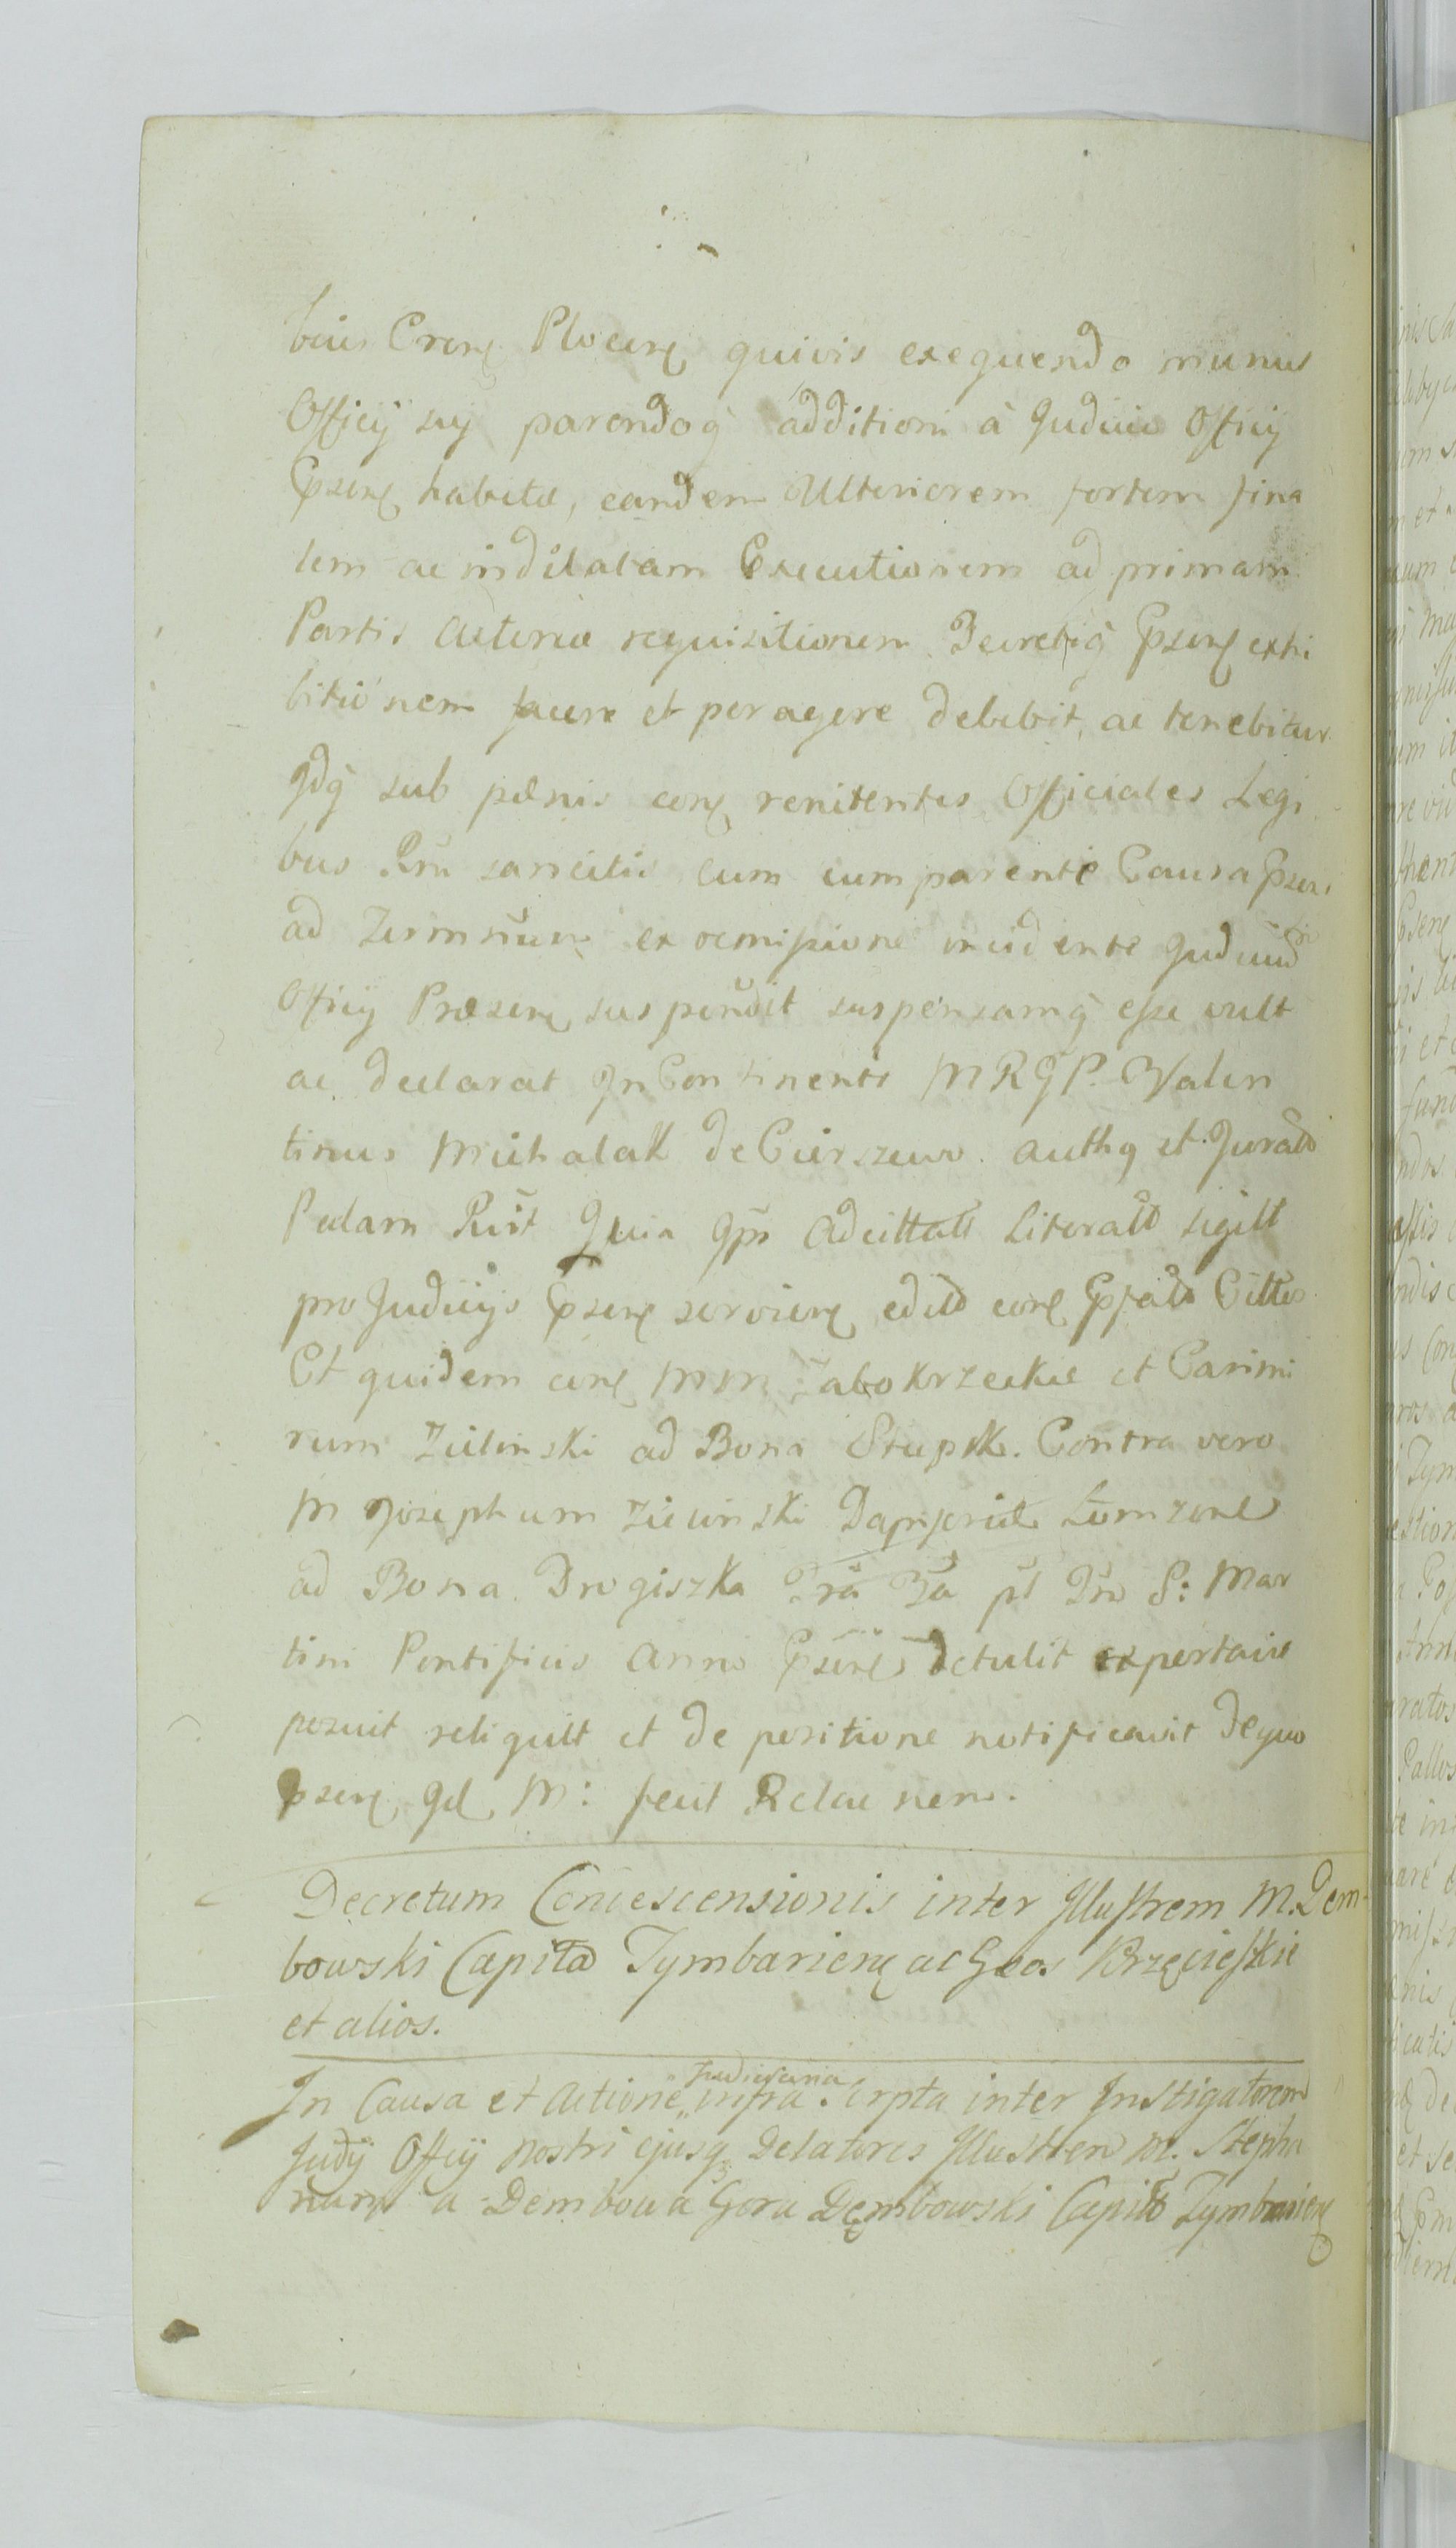 Crenę Plocenę quivis exequendo munus
Officÿ suÿ parendoq̀ additioni à Judicio Officÿ
Epsenę habitæ, eandem Ulteriorem fortem fina
lem ac indilatam Executionem ad primam
Partis Actoreæ requisitionem Decretiq̀ Epsenę exhi
bitionem facere et peragere debebit, ac tenebitur
Jdq̀ sub pænis conę renitentes Officiales Legi
bus Rm sancitis cum cum parente Causa Epsen
ad Terminum ex remissione incidente Judicium
Officÿ Præsenę suspendit suspensamq̀ esse vult
ac declarat In Continenti M R G P. Valen
tinus Michalak de Cierszewo. authę et Jurato
Palam Rcit Quia Jps Adcittatt Literatt sigitt
pro Judicÿs Epsenę servienę edito conę Epfato Cittos
Et quidem conę MM Zabokrzeckie et Casimi
rum Zielinski ad Bona Stupsk. Contra vero
M Josephum Zielinski Dapiferid Lomzens
ad Bona Drogiszka Fra 3a pt Fm S: Mar
tini Pontificis Anni Epsenę detulit expertaire
posuit reliquitt et de positione notificavit De quo
Epsenę Jd M: fecit Relac nem.
Decretum Concescensionis inter Jllustrem M. Dem-
bowski Capito Tymbarienę ac Gnos Krzęcieskie
et alios.
In Causa et Actione Judiciaria infra Scrpta inter Instigatorem
Judÿ Offcÿ nostri ejusq Delatores Jllustren M. Stepha
num a Dembowa Gora Dęmbowski Capito Tymbarienę